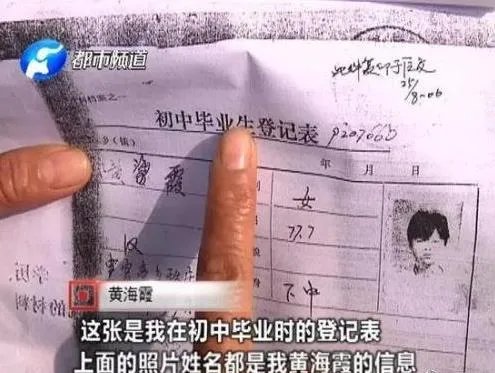 都市频道
此件复印于信友
25/8-06
初中毕业生登记表 9207066
乡(镇)
年 月 日
黄海霞
别
女
77.7
汉
下中
学历
的材料
黄海霞
这张是我在初中毕业时的登记表
上面的照片姓名都是我黄海霞的信息